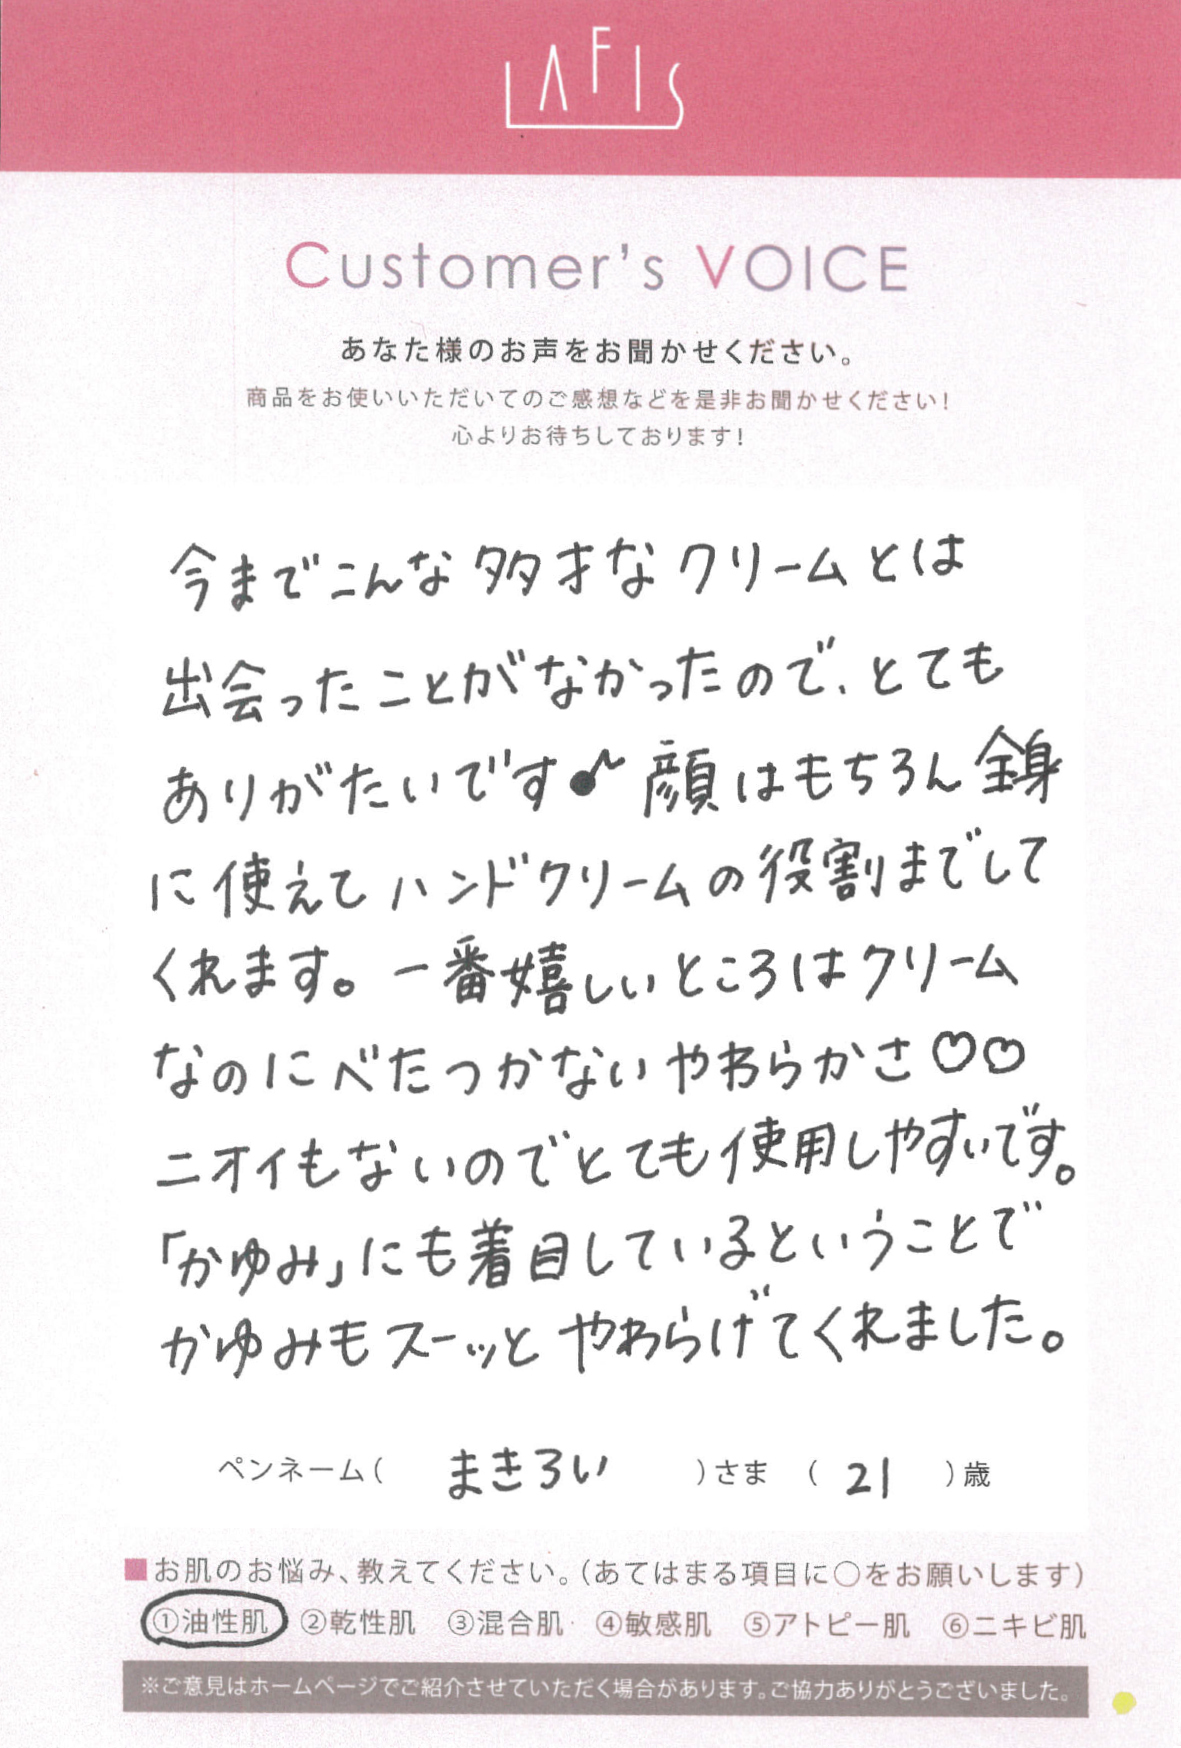 LAFIS
Customer's VOICE
あなた様のお声をお聞かせください。
商品をお使いいただいてのご感想などを是非お聞かせください!
心よりお待ちしております!
今までこんな多才なクリームとは
出会ったことがなかったので、とても
ありがたいです♪ 顔はもちろん全身
に使えてハンドクリームの役割までして
くれます。一番嬉しいところはクリーム
なのにべたつかないやわらかさ♡♡
ニオイもないのでとても使用しやすいです。
「かゆみ」にも着目しているということで
かゆみもスーッとやわらげてくれました。
ペンネーム( まきろい )さま ( 21 )歳
■お肌のお悩み、教えてください。(あてはまる項目に○をお願いします)
①油性肌 ②乾性肌 ③混合肌 ④敏感肌 ⑤アトピー肌 ⑥ニキビ肌
※ご意見はホームページでご紹介させていただく場合があります。ご協力ありがとうございました。